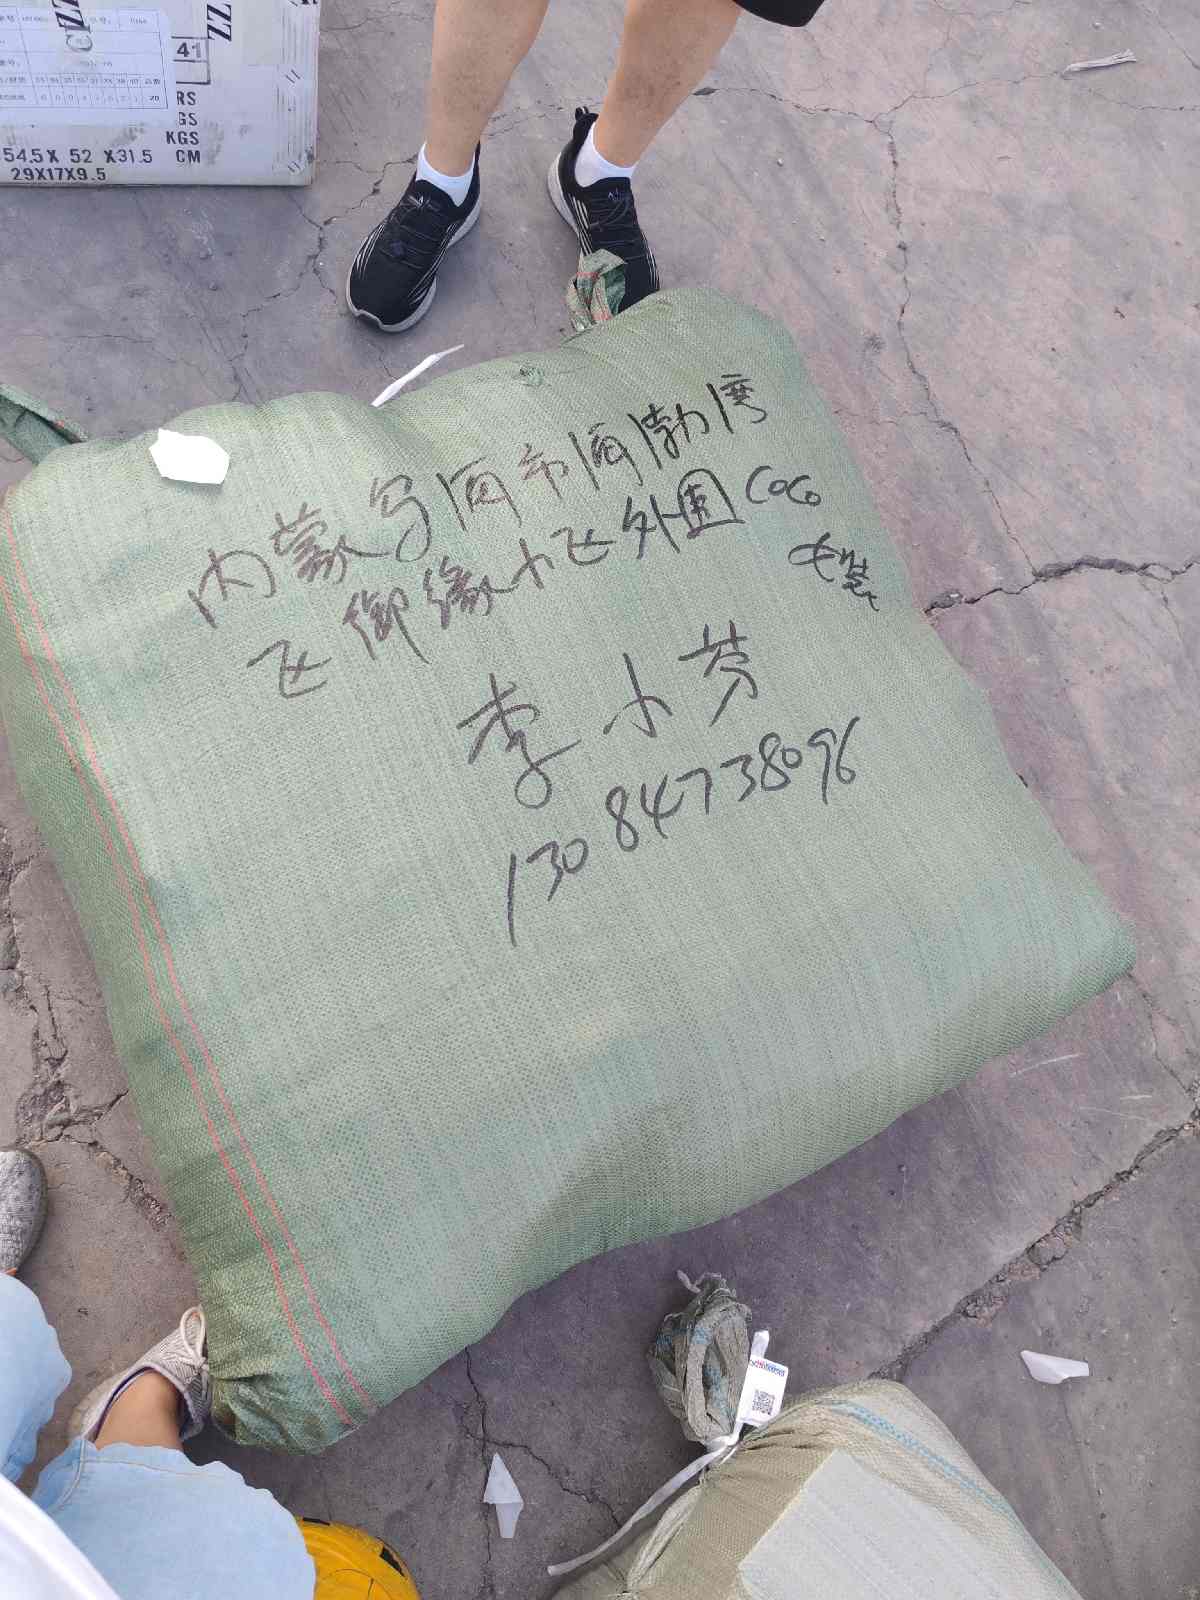 41
RS
GS
KGS
54.5 X 52 X 31.5 CM
29X17X9.5
内蒙乌海市海勃湾
区御缘小区外围 CoCo
女装
李小芬
13084738096